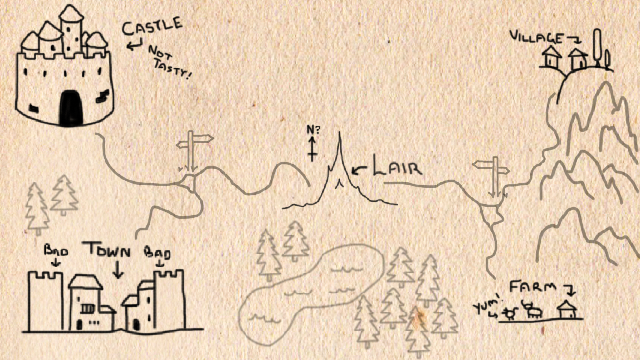 CASTLE
NOT
TASTY!
VILLAGE
N?
LAIR
BAD
TOWN
BAD
FARM
YUM!